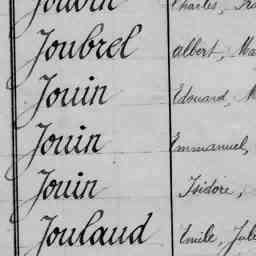 Charles,
Joubrel albert,
Jouin Edouard,
Jouin Emmanuel,
Jouin Isidore,
Joulaud Emile,